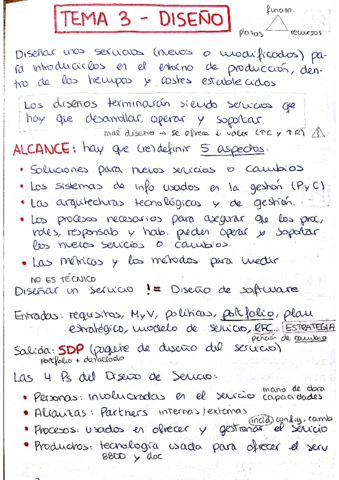 TEMA 3 - DISEÑO
funcion.
recursos
Diseñar unos servicios (nuevos o modificados) pa-
ra introducirlos en el entorno de producción, den-
tro de los tiempos y costes establecidos
Los diseños terminarán siendo servicios que
hay que desarrollar, operar y soportar.
mal diseño → se ofrece ↓ valor (↑C y ↑R)
ALCANCE: hay que (re)definir 5 aspectos:
• Soluciones para nuevos servicios o cambios
• Los sistemas de info usados en la gestión (P y C)
• Las arquitecturas tecnológicas y de gestión.
• Los procesos necesarios para asegurar que los proc,
roles, responsab y hab. pueden operar y soportar
los nuevos servicios o cambios.
• Las métricas y los métodos para medir
NO ES TÉCNICO
Diseñar un servicio != Diseño de software
Entradas: requisitos, M y V, políticas, portfolio, plan
estratégico, modelo de servicio, RFC, ESTRATEGIA
petición de cambio
Salida: SDP (paquete de diseño del servicio)
portfolio + detallado
Las 4 Ps del Diseño de Servicio:
mano de obra
• Personas: involucradas en el servicio capacidades
• Alianzas: Partners internas/externas
incid, config, camb
• Procesos: usados en ofrecer y gestionar el servicio
• Productos: tecnología usada para ofrecer el serv
BBDD y doc